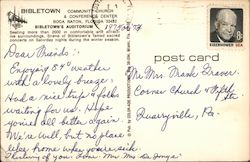 BIBLETOWN COMMUNITY CHURCH
& CONFERENCE CENTER
BOCA RATON, FLORIDA 33432
BIBLETOWN'S AUDITORIUM
Seating more than 2500 in comfortable and attractive surroundings. Scene of Bibletown's famed sacred concerts on Saturday nights during the winter season.
EISENHOWER · USA
post card
Dear Friends:
Enjoying 84° weather
with a lovely breeze.
Had a nice trip & folks
waiting for us. Hope
you're all better again.
We're well, but no place
like home when you're sick.
Thinking of you. Love
Mr. Mrs. Frank Graver
Church & Fifth
Quarryville, Pa.